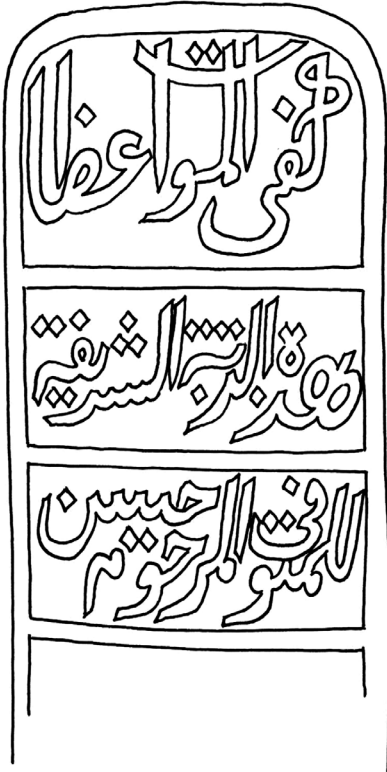 كفى الموت واعظا
هذه التربة الشريفة
للمتوفى المرحوم حسن